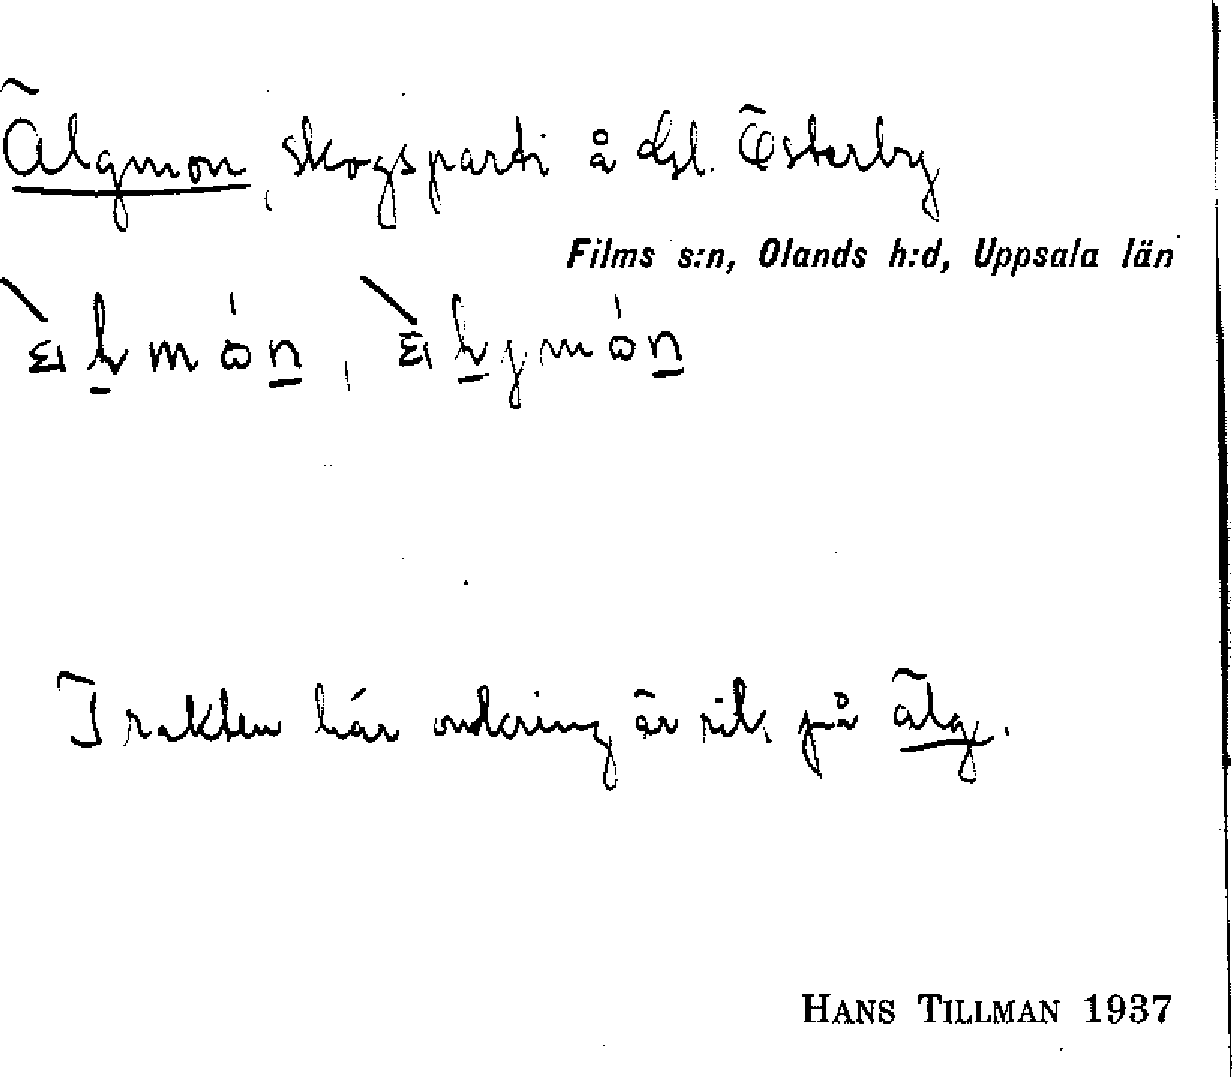 Älgmon, skogsparti å Gl. Österby
Films s:n, Olands h:d, Uppsala län
Trakten här omkring är rik på älg.
HANS TILLMAN 1937